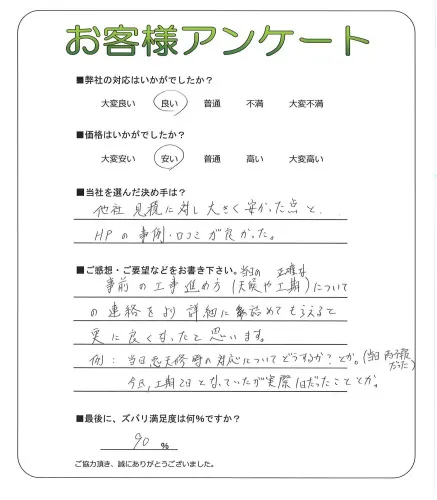 お客様アンケート
■弊社の対応はいかがでしたか？
大変良い 良い 普通 不満 大変不満
■価格はいかがでしたか？
大変安い 安い 普通 高い 大変高い
■当社を選んだ決め手は？
他社見積に対し大きく安かった点と、
HPの事例・口コミが良かった。
■ご感想・ご要望などをお書き下さい。
当日の 正確な
事前の工事進め方(天候や工期)について
の連絡をより詳細に詰めてもらえると
更に良くなったと思います。
例：当日悪天候時の対応についてどうするか？とか。(当日雨予報だった)
今回、工期2日となっていたが実際1日だったこととか。
■最後に、ズバリ満足度は何%ですか？
90 %
ご協力頂き、誠にありがとうございました。